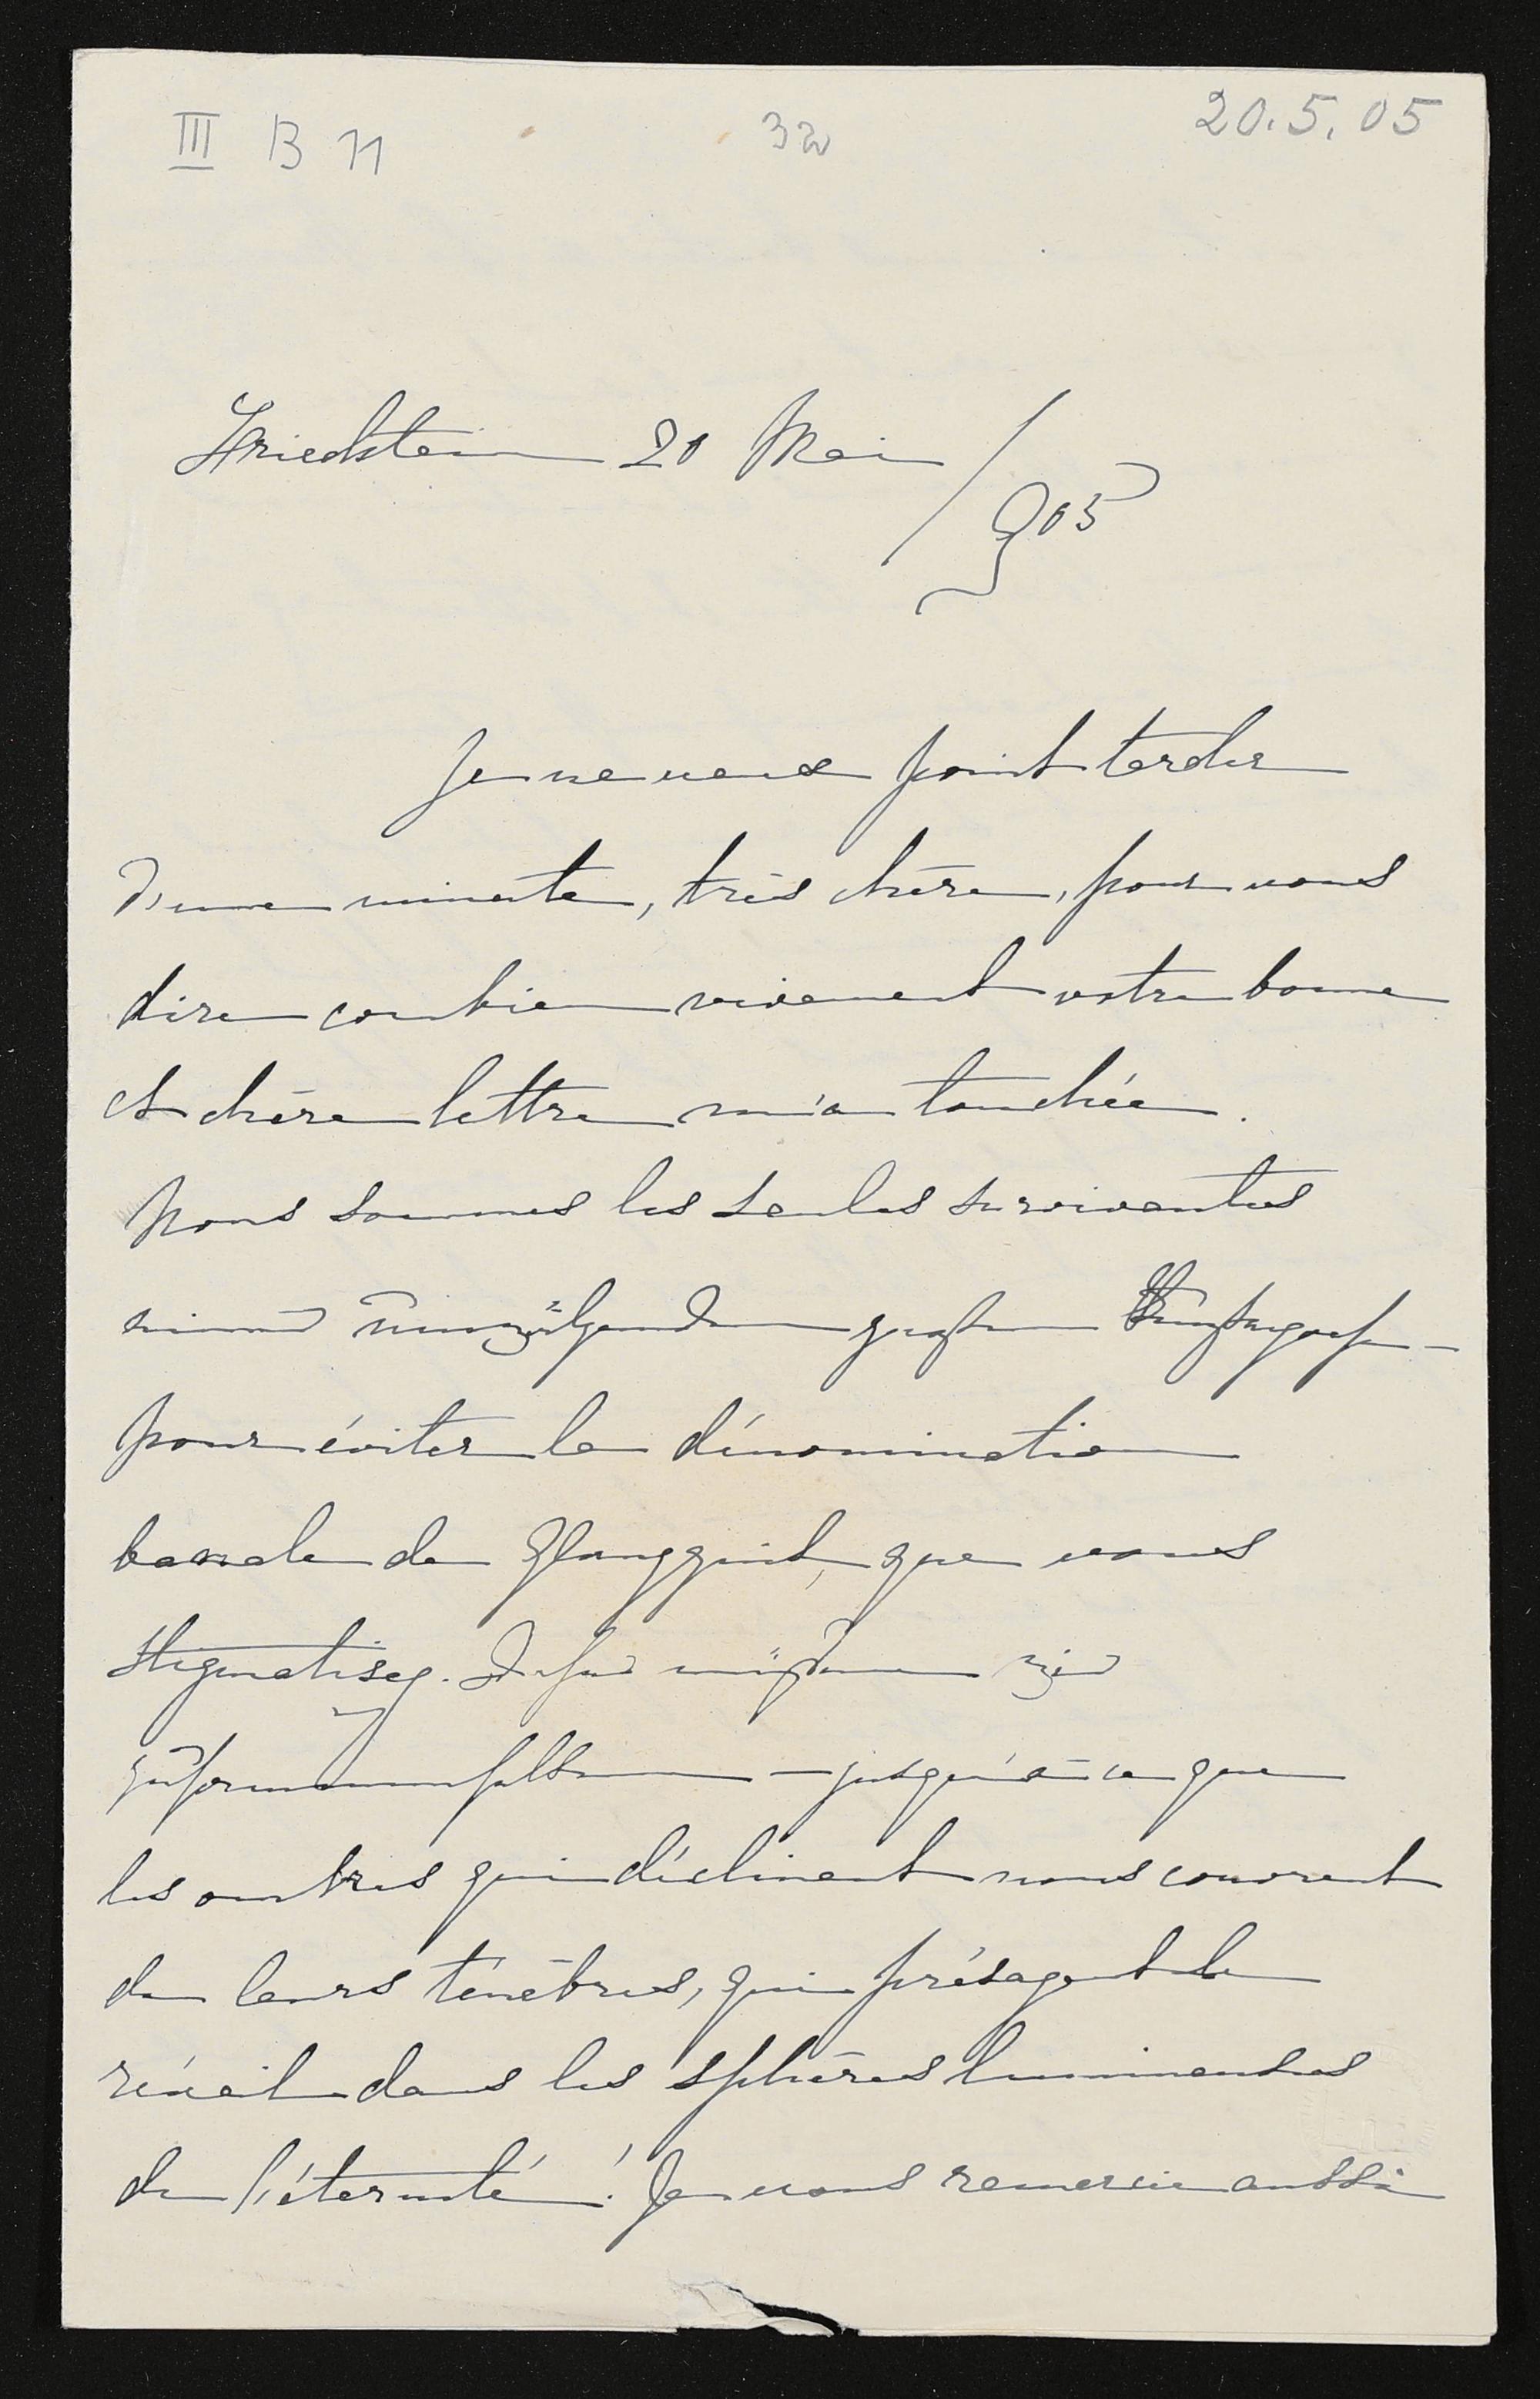 III B 11
32
20.5.05
Friedstein 20 Mai /
905
Je ne veux point tarder
d'une minute, très chère, pour vous
dire combien vivement votre bonne
et chère lettre m'a touchée.
Nous sommes les seules survivantes
einer
pour éviter la dénomination
banale de Glanzzeit, que vous
stigmatisez. Darum müssen wir
zusammenhalten – jusqu'à ce que
les ombres qui déclinent nous couvrent
de leurs ténèbres, qui présagent le
réveil dans les sphères lumineuses
de l'éternité! Je vous remercie aussi